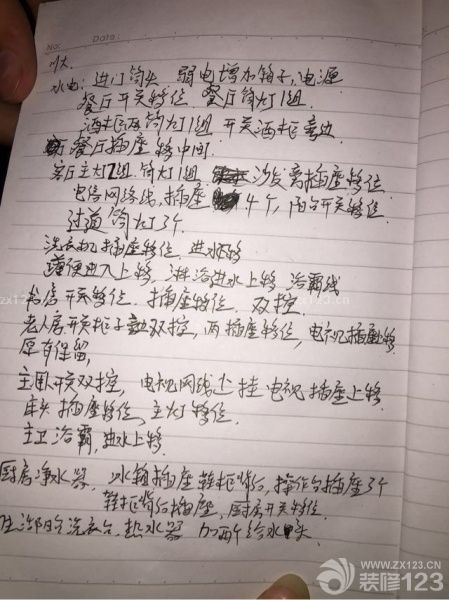 No:
Date:
水电: 进门筒头 弱电增加箱子,电源
餐厅开关移位 餐厅筒灯1组
酒柜两筒灯1组 开关酒柜旁边
餐厅插座移中间
客厅主灯2组 筒灯1组 沙发离插座移位
电信网络线,插座 4个,阳台开关移位
过道筒灯3个
洗衣机插座移位,进水下移
蹲便进入上移,淋浴进水上移 浴霸线
书房开关移位,插座移位,双控
老人房开关柜子旁双控,两插座移位,电视机插座上移
原有保留,
主卧开关双控,电视网线 挂电视插座上移
床头插座移位,主灯移位,
主卫浴霸,进水上移,
厨房净水器,冰箱插座鞋柜背后,操作台插座3个
鞋柜背后插座,厨房开关移位
生活阳台洗衣台,热水器 加两个给水头
zx123.cn
WWW.ZX123.CN
装修123